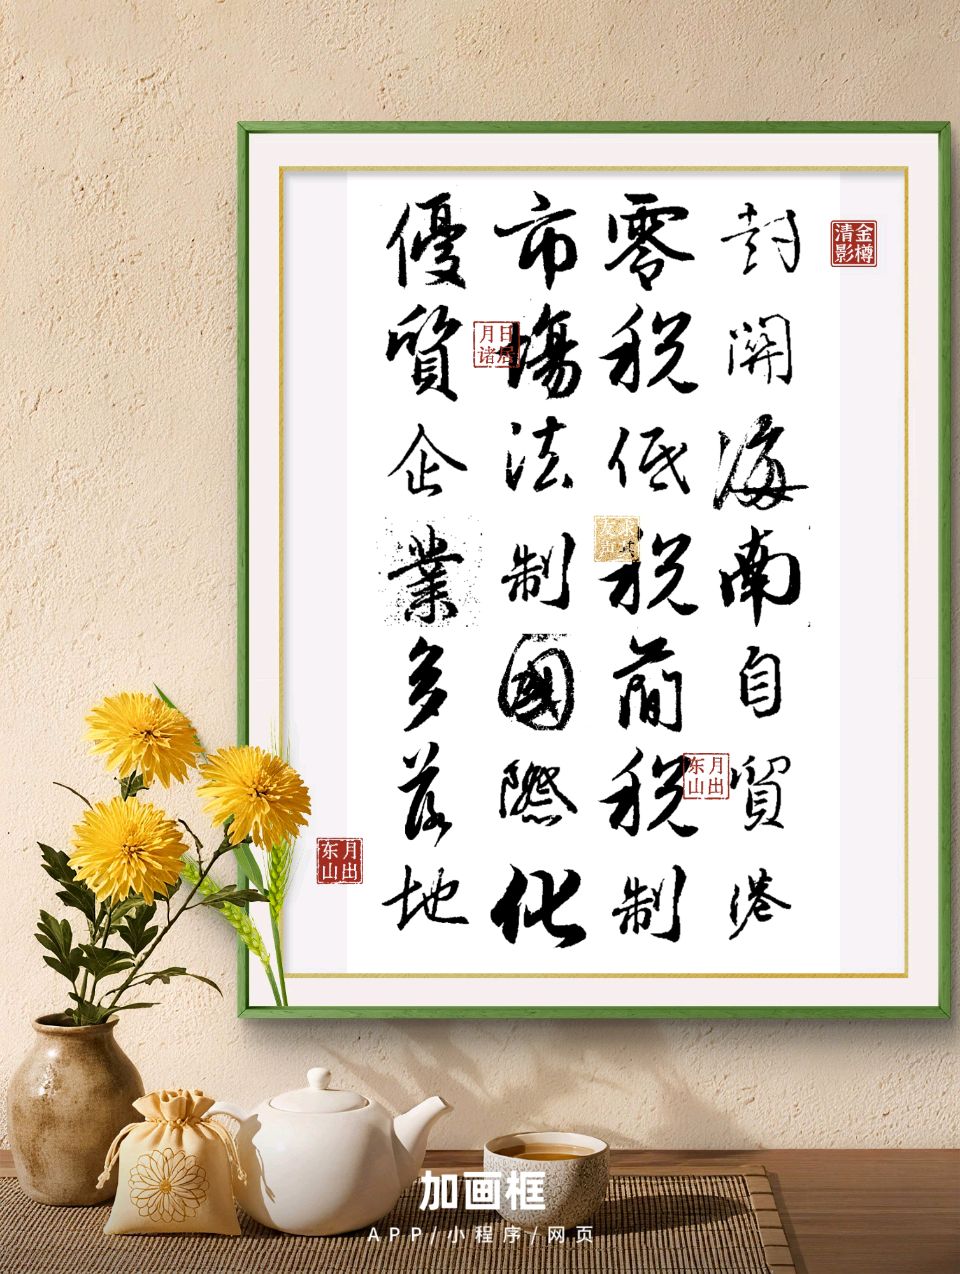 封開海南自貿港
零税低税簡税制
市場法制國際化
優質企業多落地
金樽清影
日居月诸
求其友声
月出东山
月出东山
加画框
APP/小程序/网页